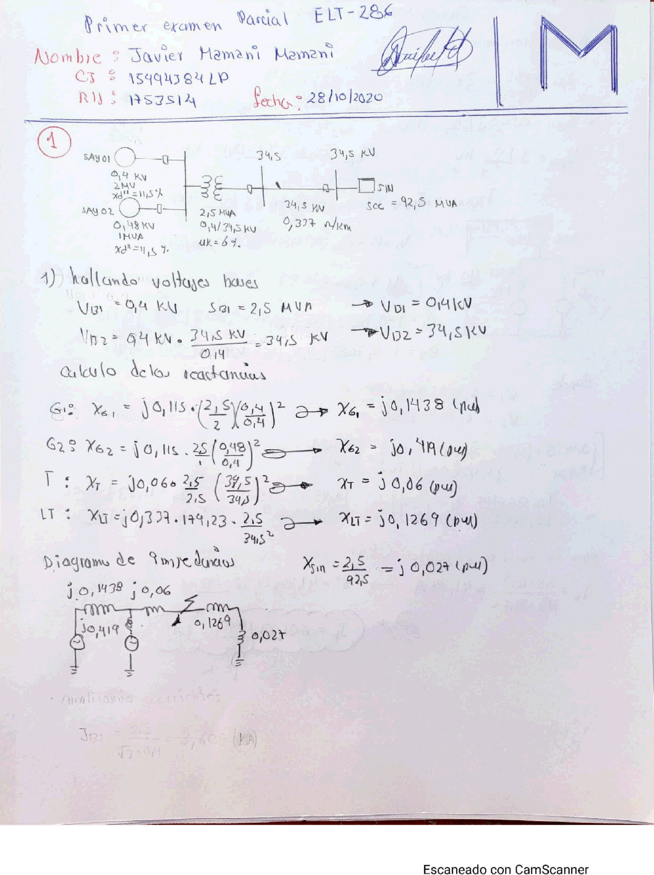 Primer examen Parcial ELT-286
Nombre : Javier Mamani Mamani
CI : 15494384 LP
RU : 1753514 fecha: 28/10/2020
M
1
SAY01
0,4 KV
2 MV
xd"=11,5 %
SAY02
0,48 KV
1 MVA
xd"=11,5 %
2,5 MVA
0,4/34,5 KV
uk=6 %
34,5
34,5 KV
0,337 Ω/km
SIN
Scc = 92,5 MVA
1) hallando voltajes bases
VB1 = 0,4 KV SB1 = 2,5 MVA → VB1 = 0,4 KV
VB2 = 0,4 KV · 34,5 KV / 0,4 = 34,5 KV → VB2 = 34,5 KV
Calculo de las reactancias
G1: XG1 = j0,115 · (2,5/2)(0,4/0,4)² → XG1 = j0,1438 (pu)
G2: XG2 = j0,115 · 2,5/1 (0,48/0,4)² → XG2 = j0,414 (pu)
T : XT = j0,060 2,5/2,5 (34,5/34,5)² → XT = j0,06 (pu)
LT : XLT = j0,337 · 179,23 · 2,5/34,5² → XLT = j0,1269 (pu)
Diagrama de impedancias Xsin = 2,5/92,5 = j0,027 (pu)
j0,1438 j0,06
j0,419 0,1269 0,027
Escaneado con CamScanner